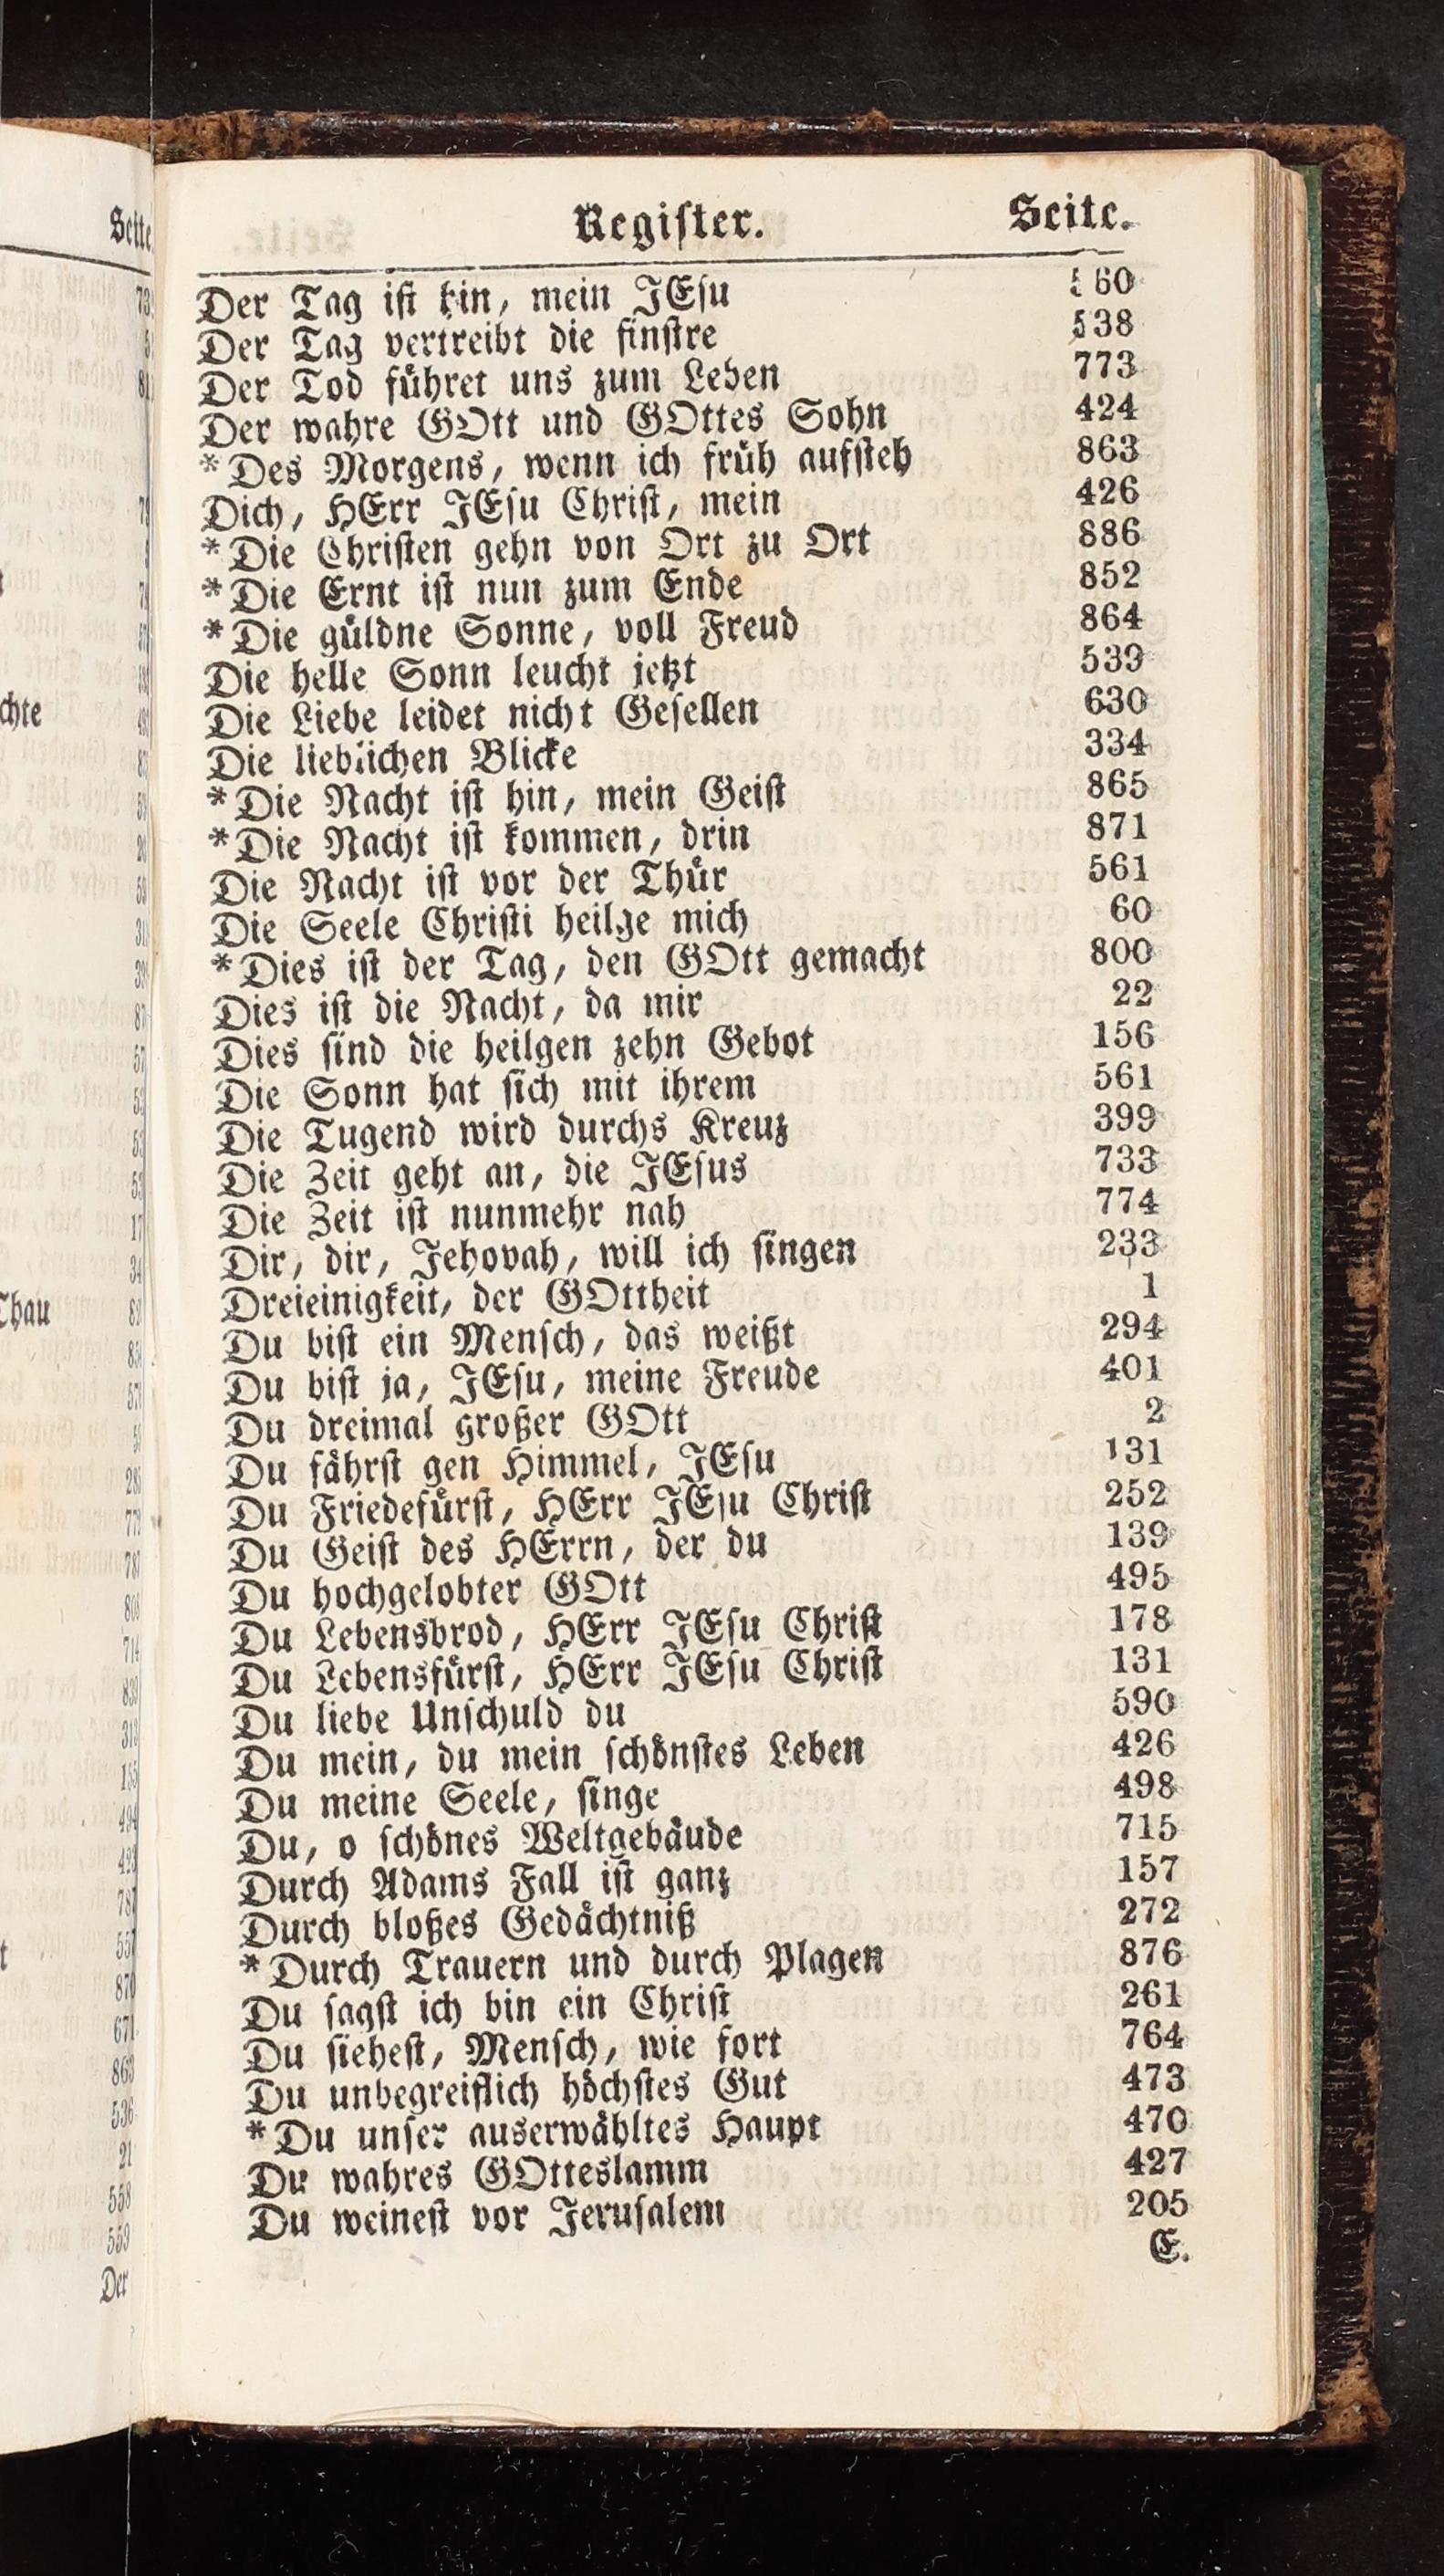 Register. Seite.
Der Tag ist hin, mein JEsu 560
Der Tag vertreibt die finstre 538
Der Tod führet uns zum Leben 773
Der wahre GOtt und GOttes Sohn 424
*Des Morgens, wenn ich früh aufsteh 863
Dich, HErr JEsu Christ, mein 426
*Die Christen gehn von Ort zu Ort 886
*Die Ernt ist nun zum Ende 852
*Die güldne Sonne, voll Freud 864
Die helle Sonn leucht jetzt 539
Die Liebe leidet nicht Gesellen 630
Die lieblichen Blicke 334
*Die Nacht ist hin, mein Geist 865
*Die Nacht ist kommen, drin 871
Die Nacht ist vor der Thür 561
Die Seele Christi heilge mich 60
*Dies ist der Tag, den GOtt gemacht 800
Dies ist die Nacht, da mir 22
Dies sind die heilgen zehn Gebot 156
Die Sonn hat sich mit ihrem 561
Die Tugend wird durchs Kreuz 399
Die Zeit geht an, die JEsus 733
Die Zeit ist nunmehr nah 774
Dir, dir, Jehovah, will ich singen 233
Dreieinigkeit, der GOttheit 1
Du bist ein Mensch, das weißt 294
Du bist ja, JEsu, meine Freude 401
Du dreimal großer GOtt 2
Du fährst gen Himmel, JEsu 131
Du Friedefürst, HErr JEsu Christ 252
Du Geist des HErrn, der du 139
Du hochgelobter GOtt 495
Du Lebensbrod, HErr JEsu Christ 178
Du Lebensfürst, HErr JEsu Christ 131
Du liebe Unschuld du 590
Du mein, du mein schönstes Leben 426
Du meine Seele, singe 498
Du, o schönes Weltgebäude 715
Durch Adams Fall ist ganz 157
Durch bloßes Gedächtniß 272
*Durch Trauern und durch Plagen 876
Du sagst ich bin ein Christ 261
Du siehest, Mensch, wie fort 764
Du unbegreiflich höchstes Gut 473
*Du unser auserwähltes Haupt 470
Du wahres GOtteslamm 427
Du weinest vor Jerusalem 205
E.